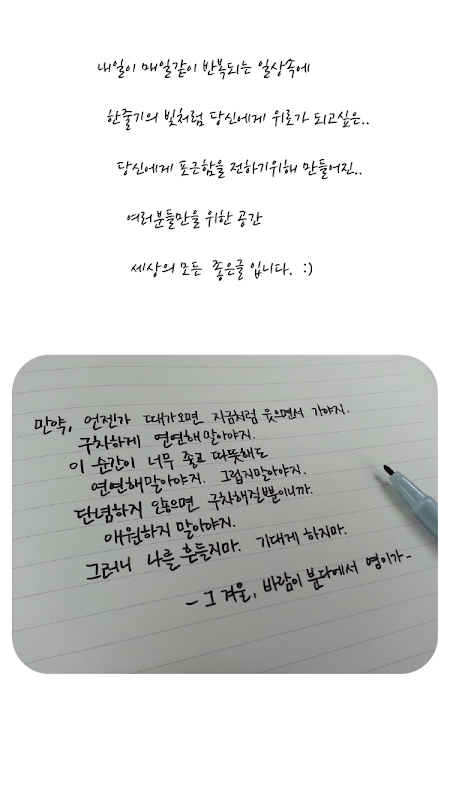 내일이 매일같이 반복되는 일상속에
한줄기의 빛처럼 당신에게 위로가 되고싶은..
당신에게 포근함을 전하기위해 만들어진..
여러분들만을 위한 공간
세상의 모든 좋은글 입니다. :)
만약, 언젠가 때가오면 지금처럼 웃으면서 가야지.
구차하게 연연해 말아야지.
이 순간이 너무 좋고 따뜻해도
연연해말아야지. 그립지말아야지.
단념하지 않으면 구차해질뿐이니까.
애원하지 말아야지.
그러니 나를 흔들지마. 기대게 하지마.
- 그 겨울, 바람이 분다에서 영이가 -